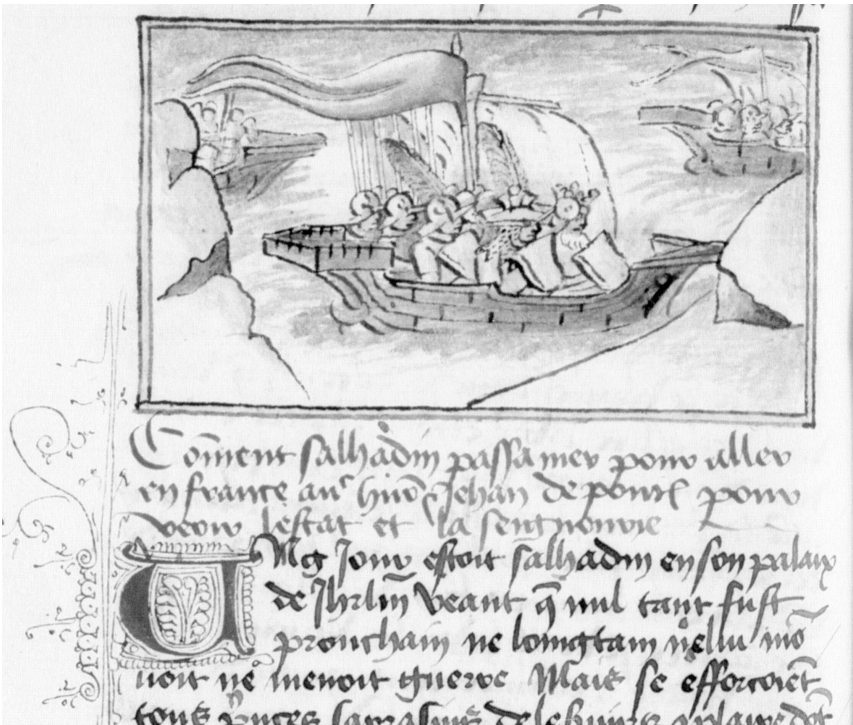 Co͞ment salhadin passa mer pour aller
en france auc huō & Jehan de pontif pour
veoir lestat et la seignourie
Ung Jour estoit salhadin en son palaix
de Jhrlm̄ veant q̄ nul tant fust
prouchain ne loingtain ne lui mō
uoit ne menoit guerre Mais se efforcoiēt
tous